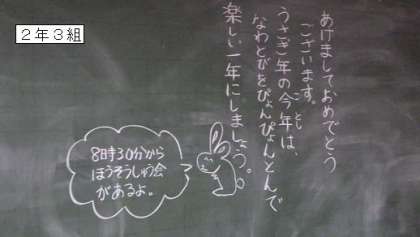 ２年３組
あけましておめでとう
ございます。
うさぎ年の今年は、
ことし
なわとびをぴょんぴょんとんで
楽しい一年にしましょう。
8時30分から
ほうそうしゅう会
があるよ。